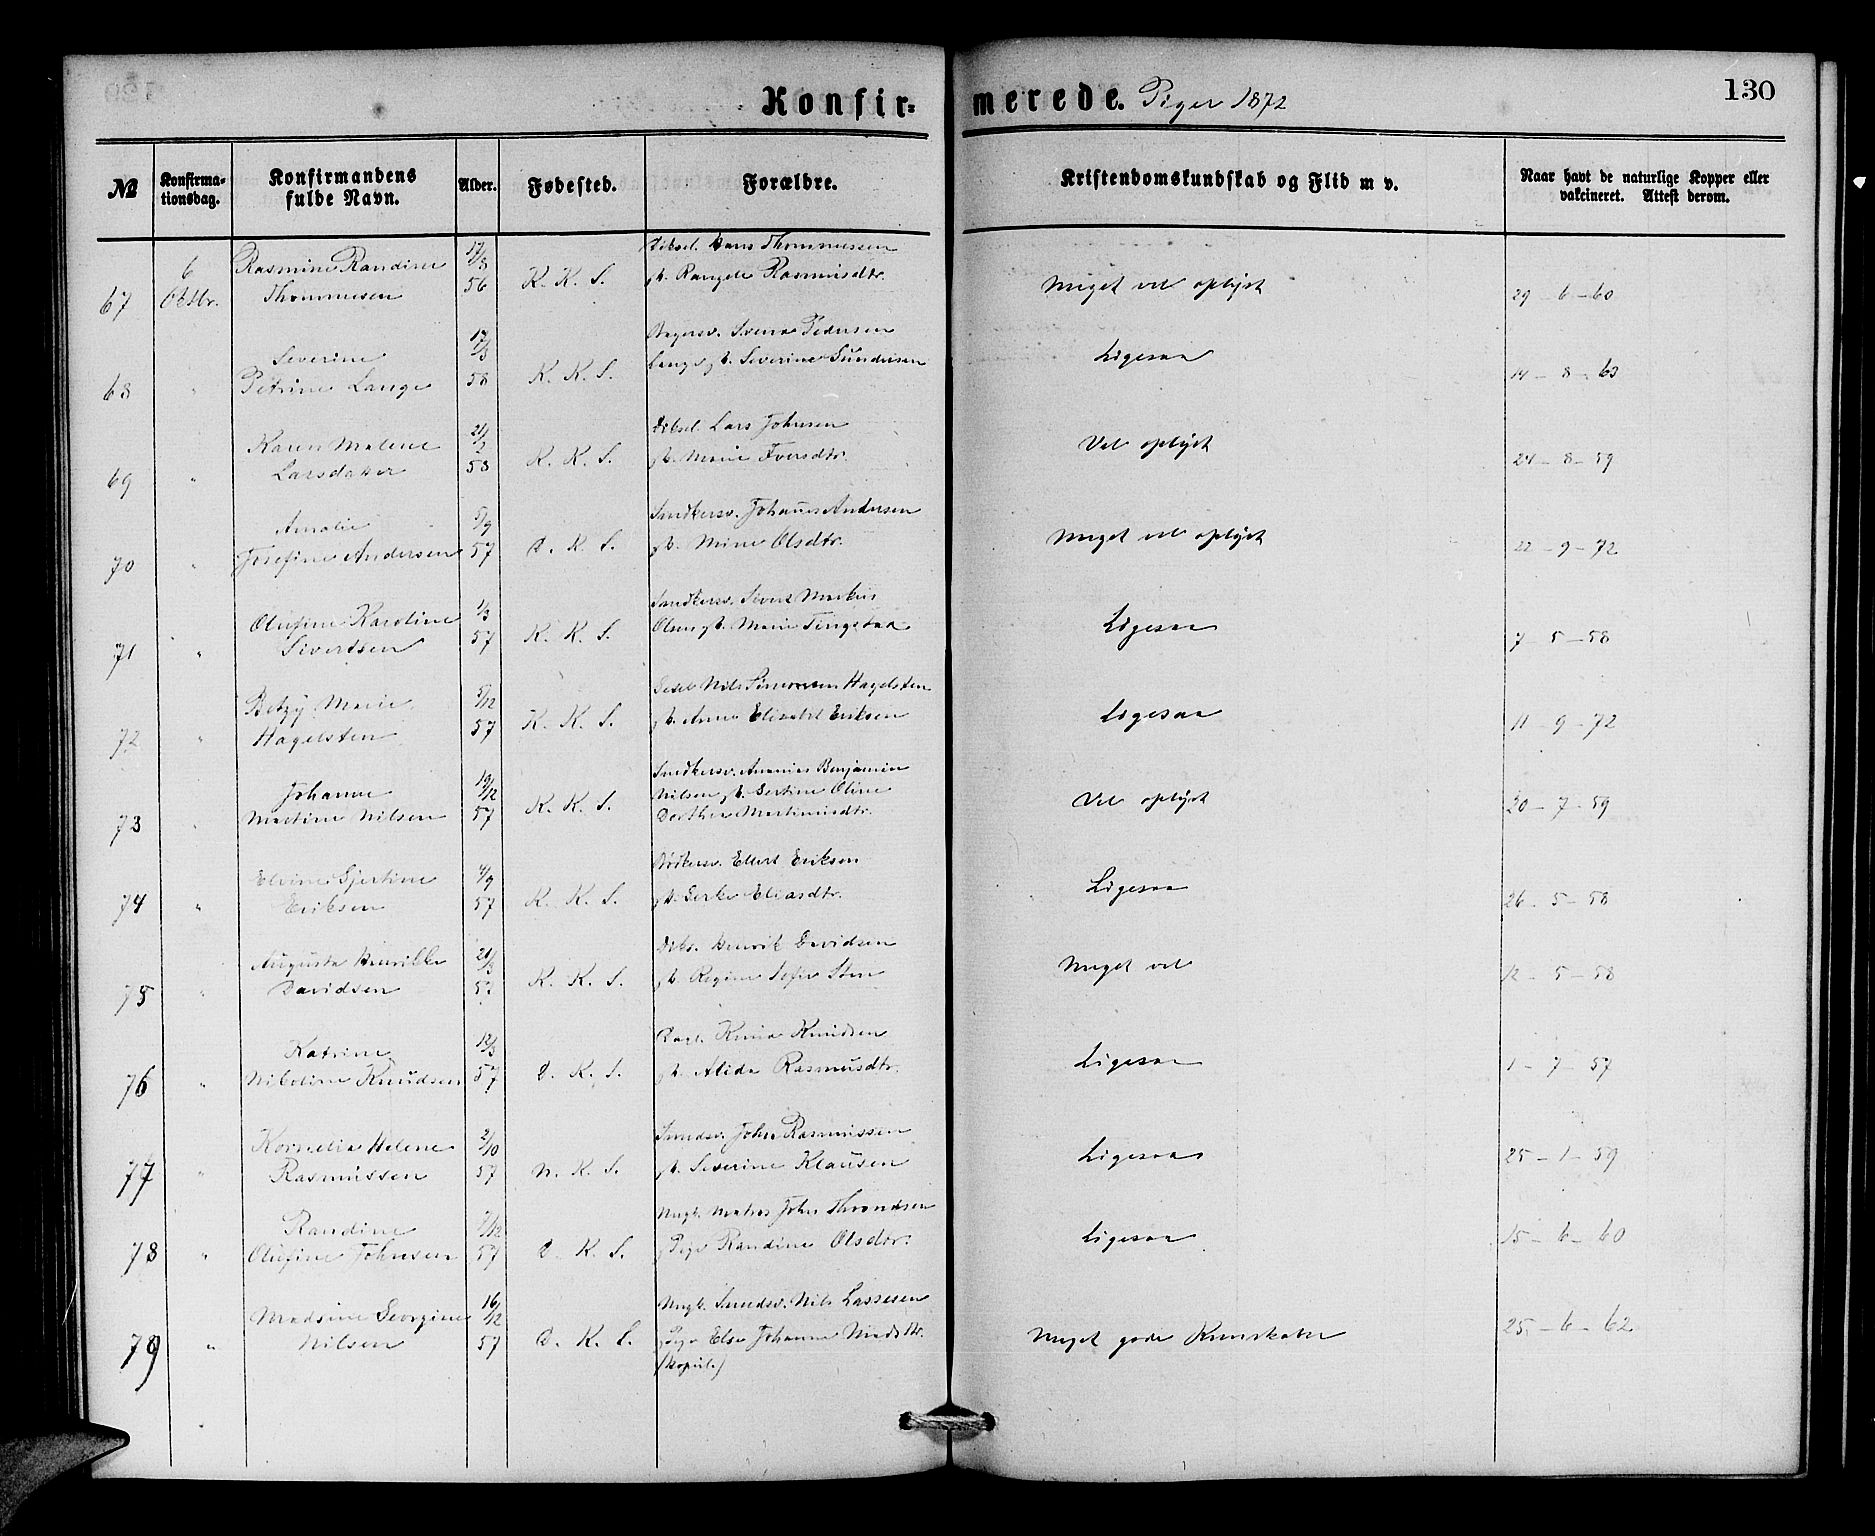 Konfirmerede. Piger 1872
130
№
Konfirma-
tionsdag.
Konfirmandens
fulde Navn.
Alder.
Fødested.
Forældre.
Kristendomskundskab og Flid m v.
Naar havt de naturlige Kopper eller
vakcineret. Attest derom.
67 6 Oktbr. Rasmine Randine 17/3
Thommesen 56 K. K. S.
Hans Thommesen
gt. Rasmusdtr.
Meget vel oplyst 29-6-60
68 " Severine 17/3
Petrine Lange 58 K. K. S.
Svend Pedersen
Lange gt. Severine Gundersen
Ligesaa 14-8-63
69 " Karen Malene 21/2
Larsdatter 58 K. K. S.
Lars Johnsen
gt. Marie Iversdtr.
Vel oplyst 24-8-59
70 " Amalie 5/9
Josefine Andersen 57 D. K. S.
Snedkersv. Johannes Andersen
gt. Mine Olsdtr.
Meget vel oplyst 22-9-72
71 " Olufine Karoline 1/3
Sivertsen 57 K. K. S.
Snedkersv. Sivert Markus
Olsen gt. Marie Tingstad
Ligesaa 7-5-58
72 " Betzy Marie 5/12
Hagelsten 57 K. K. S.
Nils Simonsen Hagelsten
gt. Anne Elisabet Eriksen
Ligesaa 11-9-72
73 " Johanne 19/12
Martine Nilsen 57 K. K. S.
Snedkersv. Ananias Benjamin
Nilsen gt. Gertine Oline
Dorthea Martinusdtr.
Vel oplyst 20-7-59
74 " Elvine Gjertine 4/9
Eriksen 57 K. K. S.
Bødkersv. Ellert Eriksen
gt. Eliasdtr.
Ligesaa 26-5-58
75 " Augusta Henrikke 21/3
Davidsen 57 K. K. S.
Henrik Davidsen
gt. Regine Sofie Sten
Meget vel 12-5-58
76 " Katrine 12/3
Nikoline Knudsen 57 D. K. S.
Dagl. Knud Knudsen
gt. Alida Rasmusdtr.
Ligesaa 1-7-57
77 " Kornelia Helene 2/10
Rasmussen 57 N. K. S.
Smedsv. John Rasmussen
gt. Severine Klausen
Ligesaa 25-1-59
78 " Randine 7/12
Olufine Johnsen 57 D. K. S.
Ungk. Matros John Throndsen
Pige Randine Olsdtr.
Ligesaa 15-6-60
79 " Madsine Georgine 16/12
Nilsen 57 D. K. S.
Ungk. Smedsv. Nils Lassesen
Pige Else Johanne Madsdtr.
(kopul.)
Meget gode Kunskaber 25-6-62